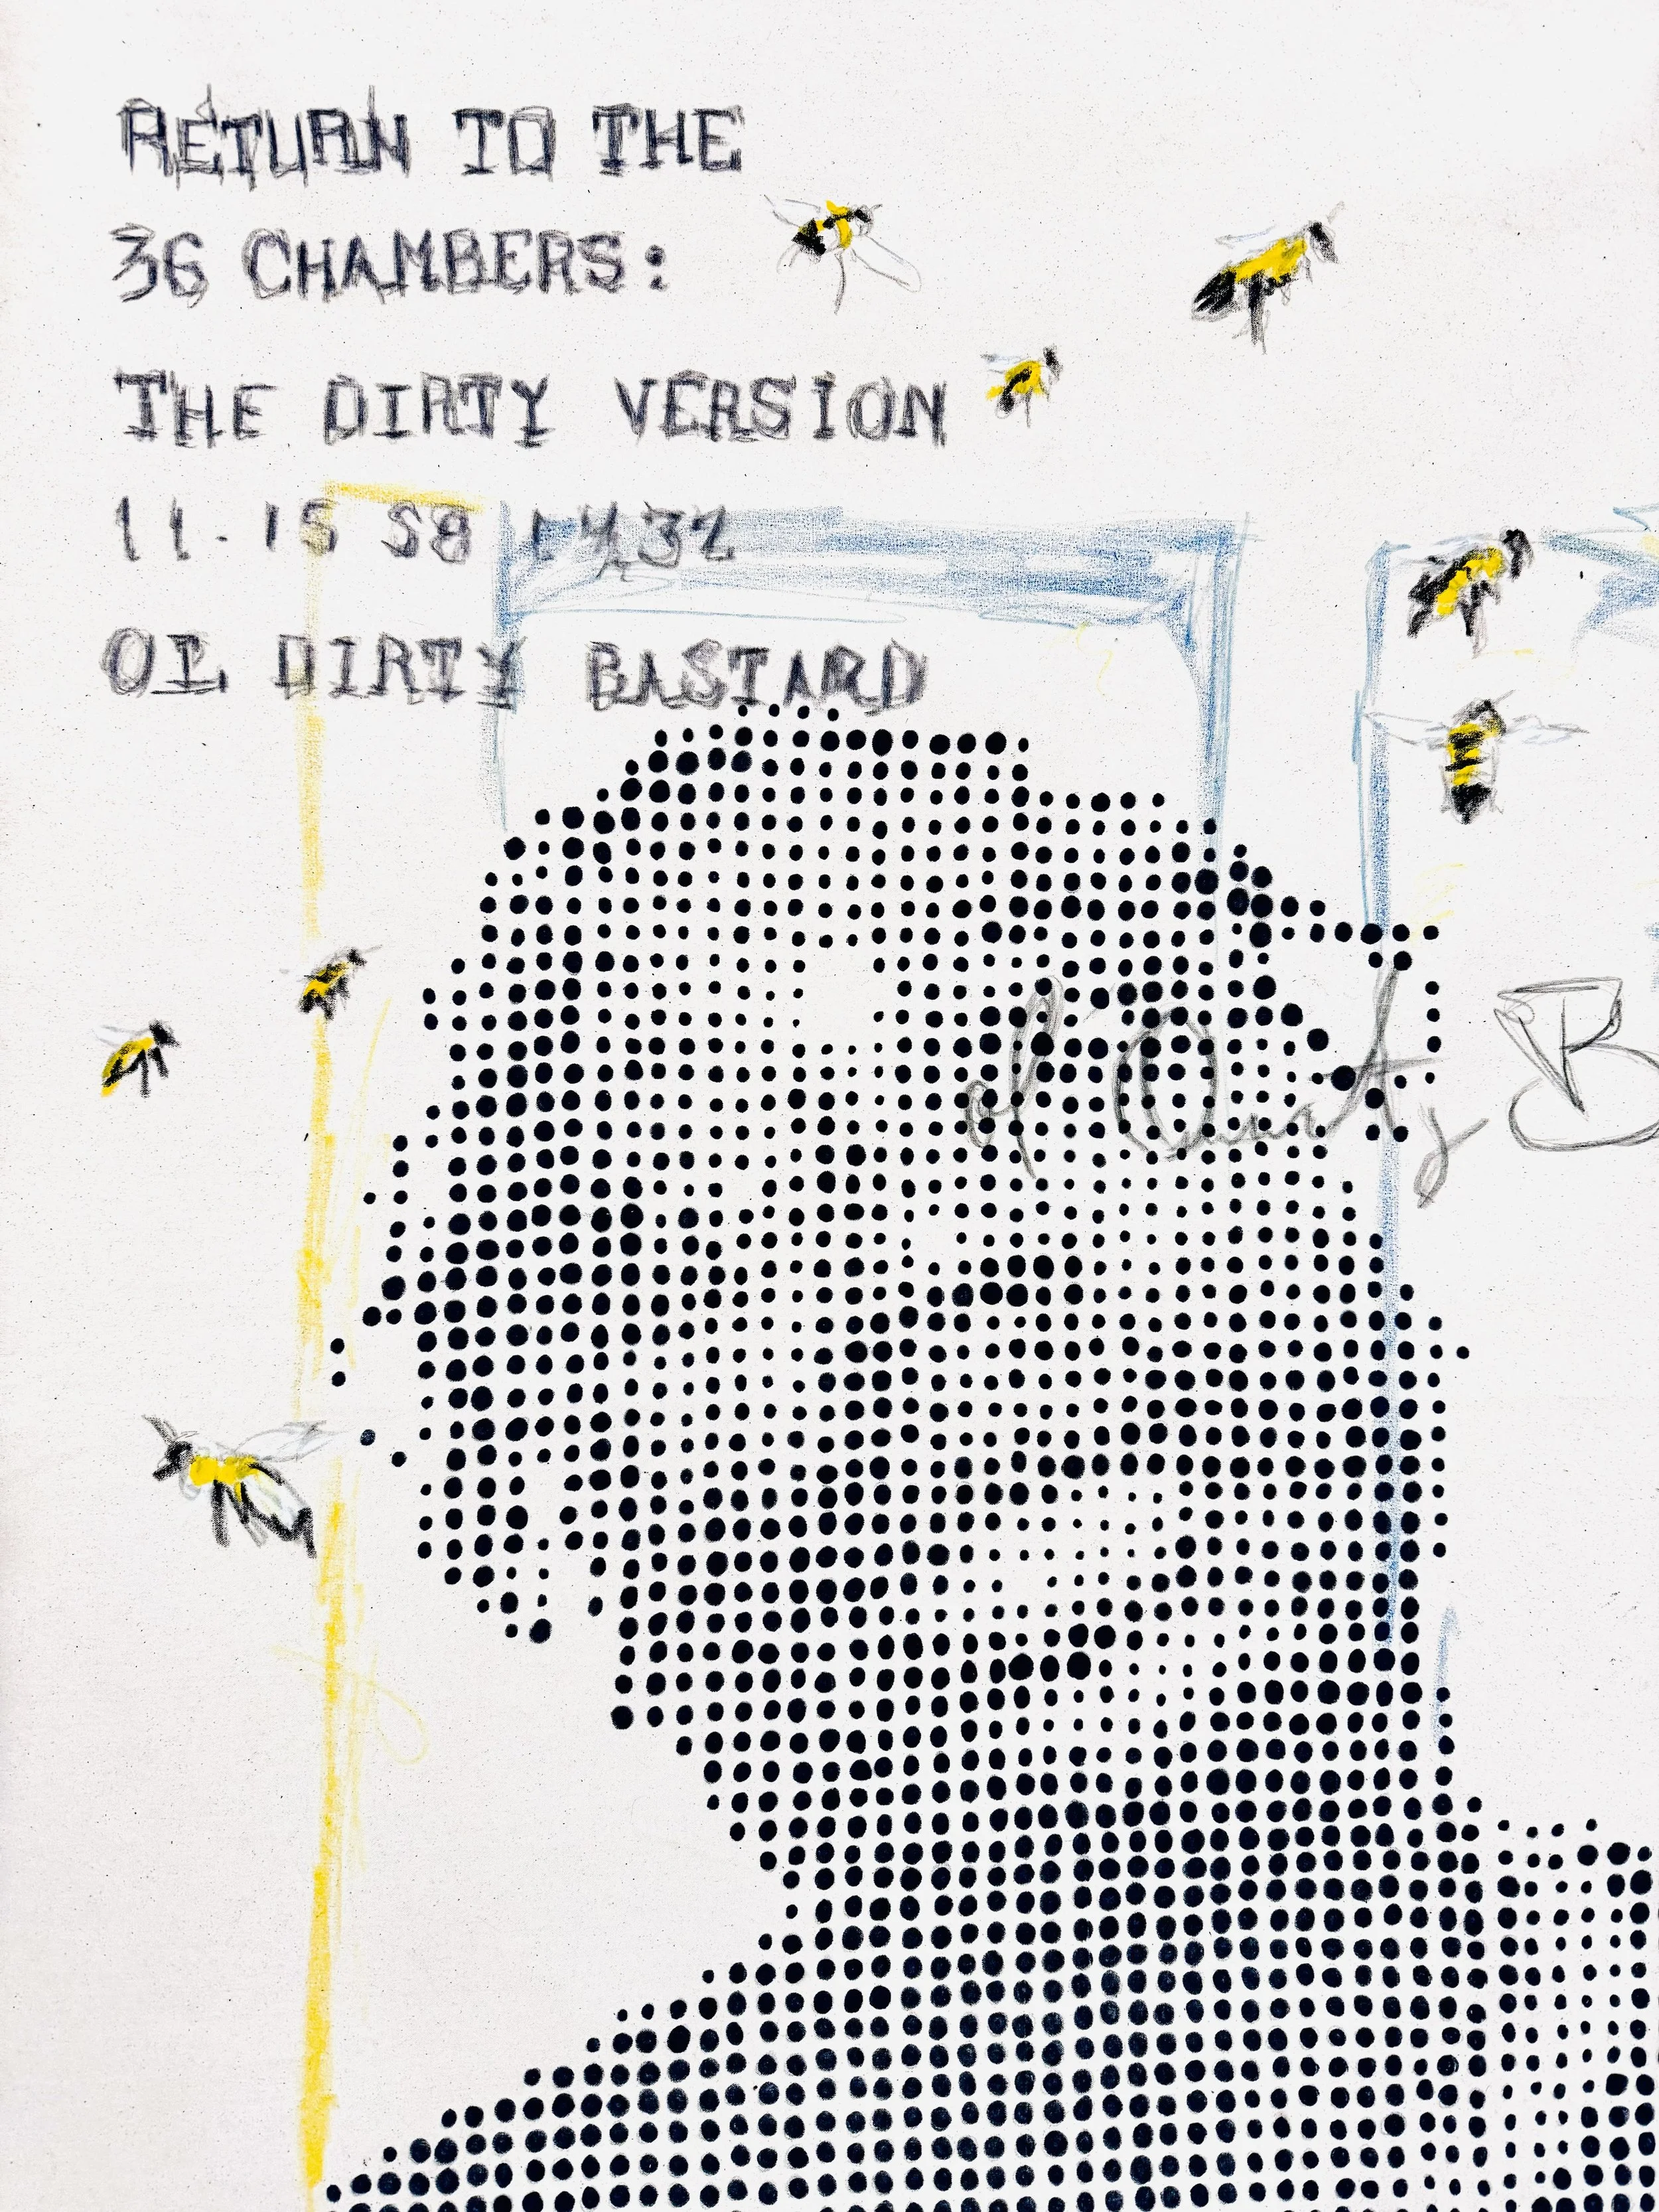 RETURN TO THE
36 CHAMBERS:
THE DIRTY VERSION
11.15 58
OL DIRTY BASTARD
ol Dirty B